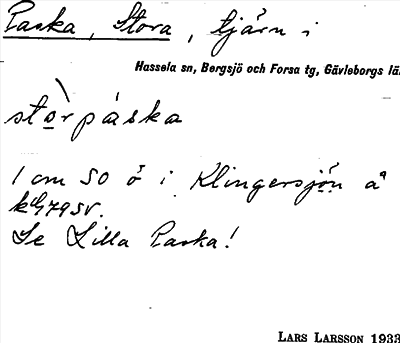 Paska, Stora, tjärn i
Hassela sn, Bergsjö och Forsa tg, Gävleborgs lä
stòrpáska
1 cm SO ö i Klingersjön å
79 SV.
Se Lilla Paska!
LARS LARSSON 1933